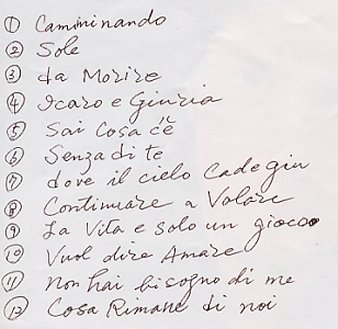 ① Camminando
② Sole
③ da Morire
④ Icaro e Giuria
⑤ Sai Cosa c'è
⑥ Senza di te
⑦ dove il cielo Cade giu
⑧ Continuare a Volare
⑨ La Vita e solo un gioco
⑩ Vuol dire Amare
⑪ Non hai bisogno di me
⑫ Cosa Rimane di noi